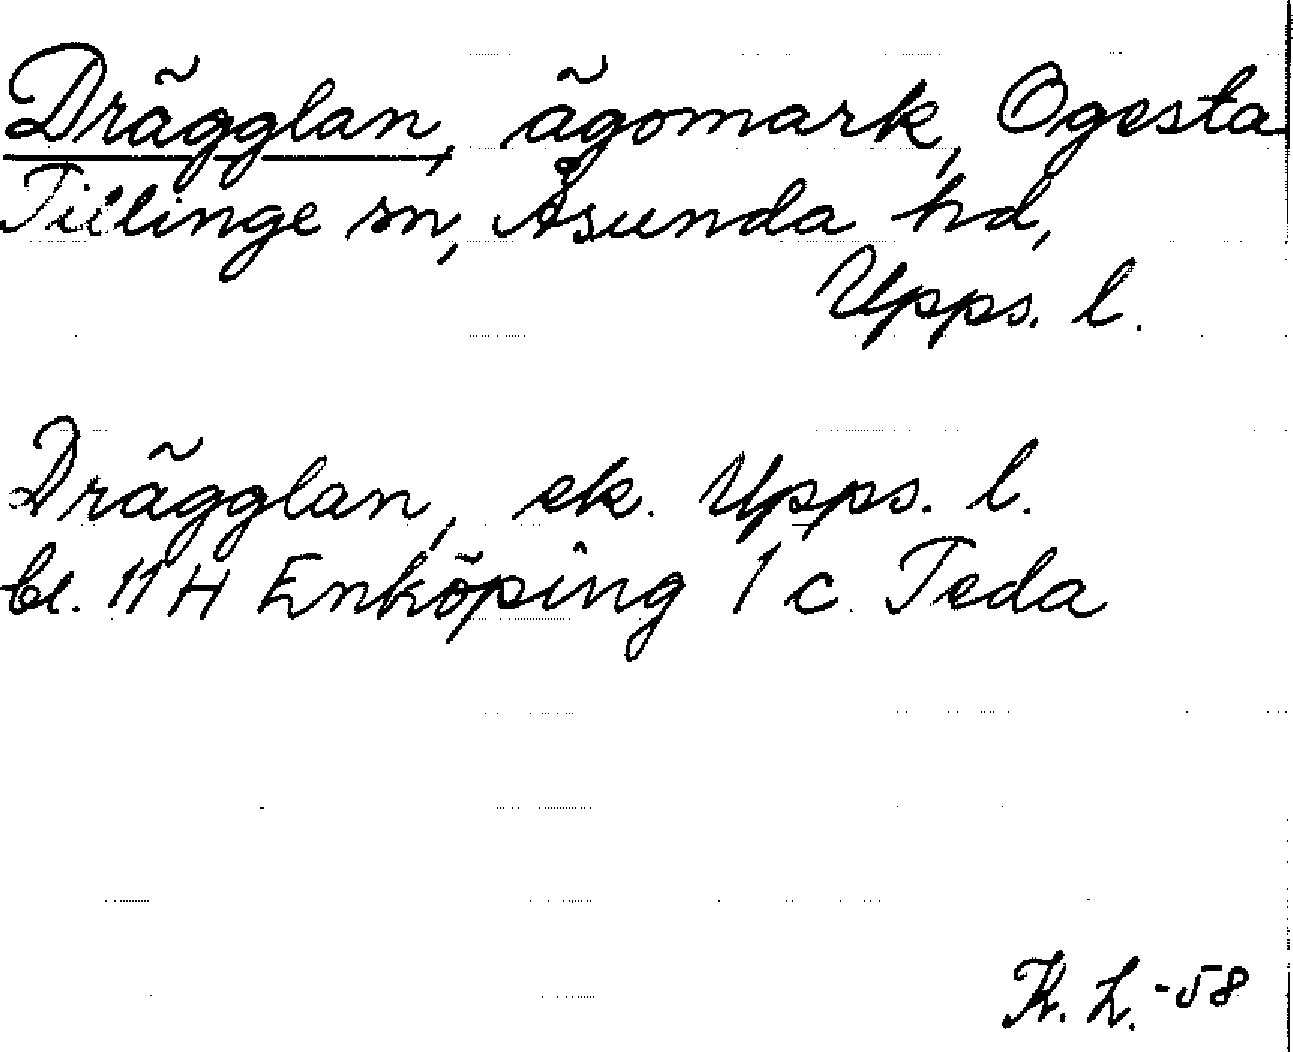 Drägglan, ägomark, Ogesta
Tillinge sn, Åsunda hd,
Upps. l.
Drägglan, ek. Upps. l.
bl. 11 H Enköping 1 c Teda
K. L. -58